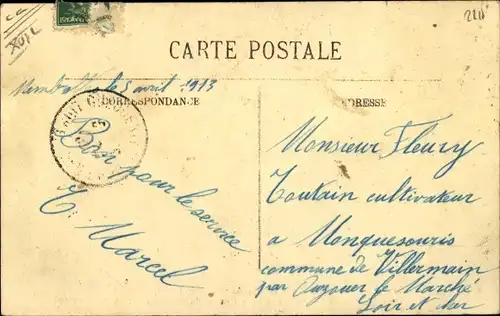 CARTE POSTALE
le 5 avril 1913
CORRESPONDANCE
ADRESSE
Bon pour le service
T. Marcel
Monsieur Fleury
Toutain cultivateur
a Monquesouris
commune de Villermain
par Auzouer le Marché
Loir et cher